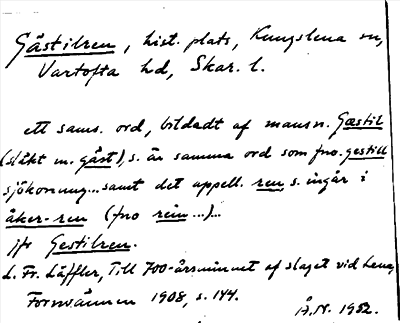 Gästilren, hist. plats, Kungslena sn,
Vartofta hd, Skar. l.
ett sams. ord, bildadt af mansn. Gæstil
(släkt m. gäst), s. är samma ord som fno. gestill
sjökonung... samt det appell. ren, s. ingår i
åker-ren (fno rein...)...
jfr Gestilren.
L. Fr. Läffler, Till 700-årsminnet af slaget vid Lena,
Fornvännen 1908, s. 144.
Å.N. 1952.